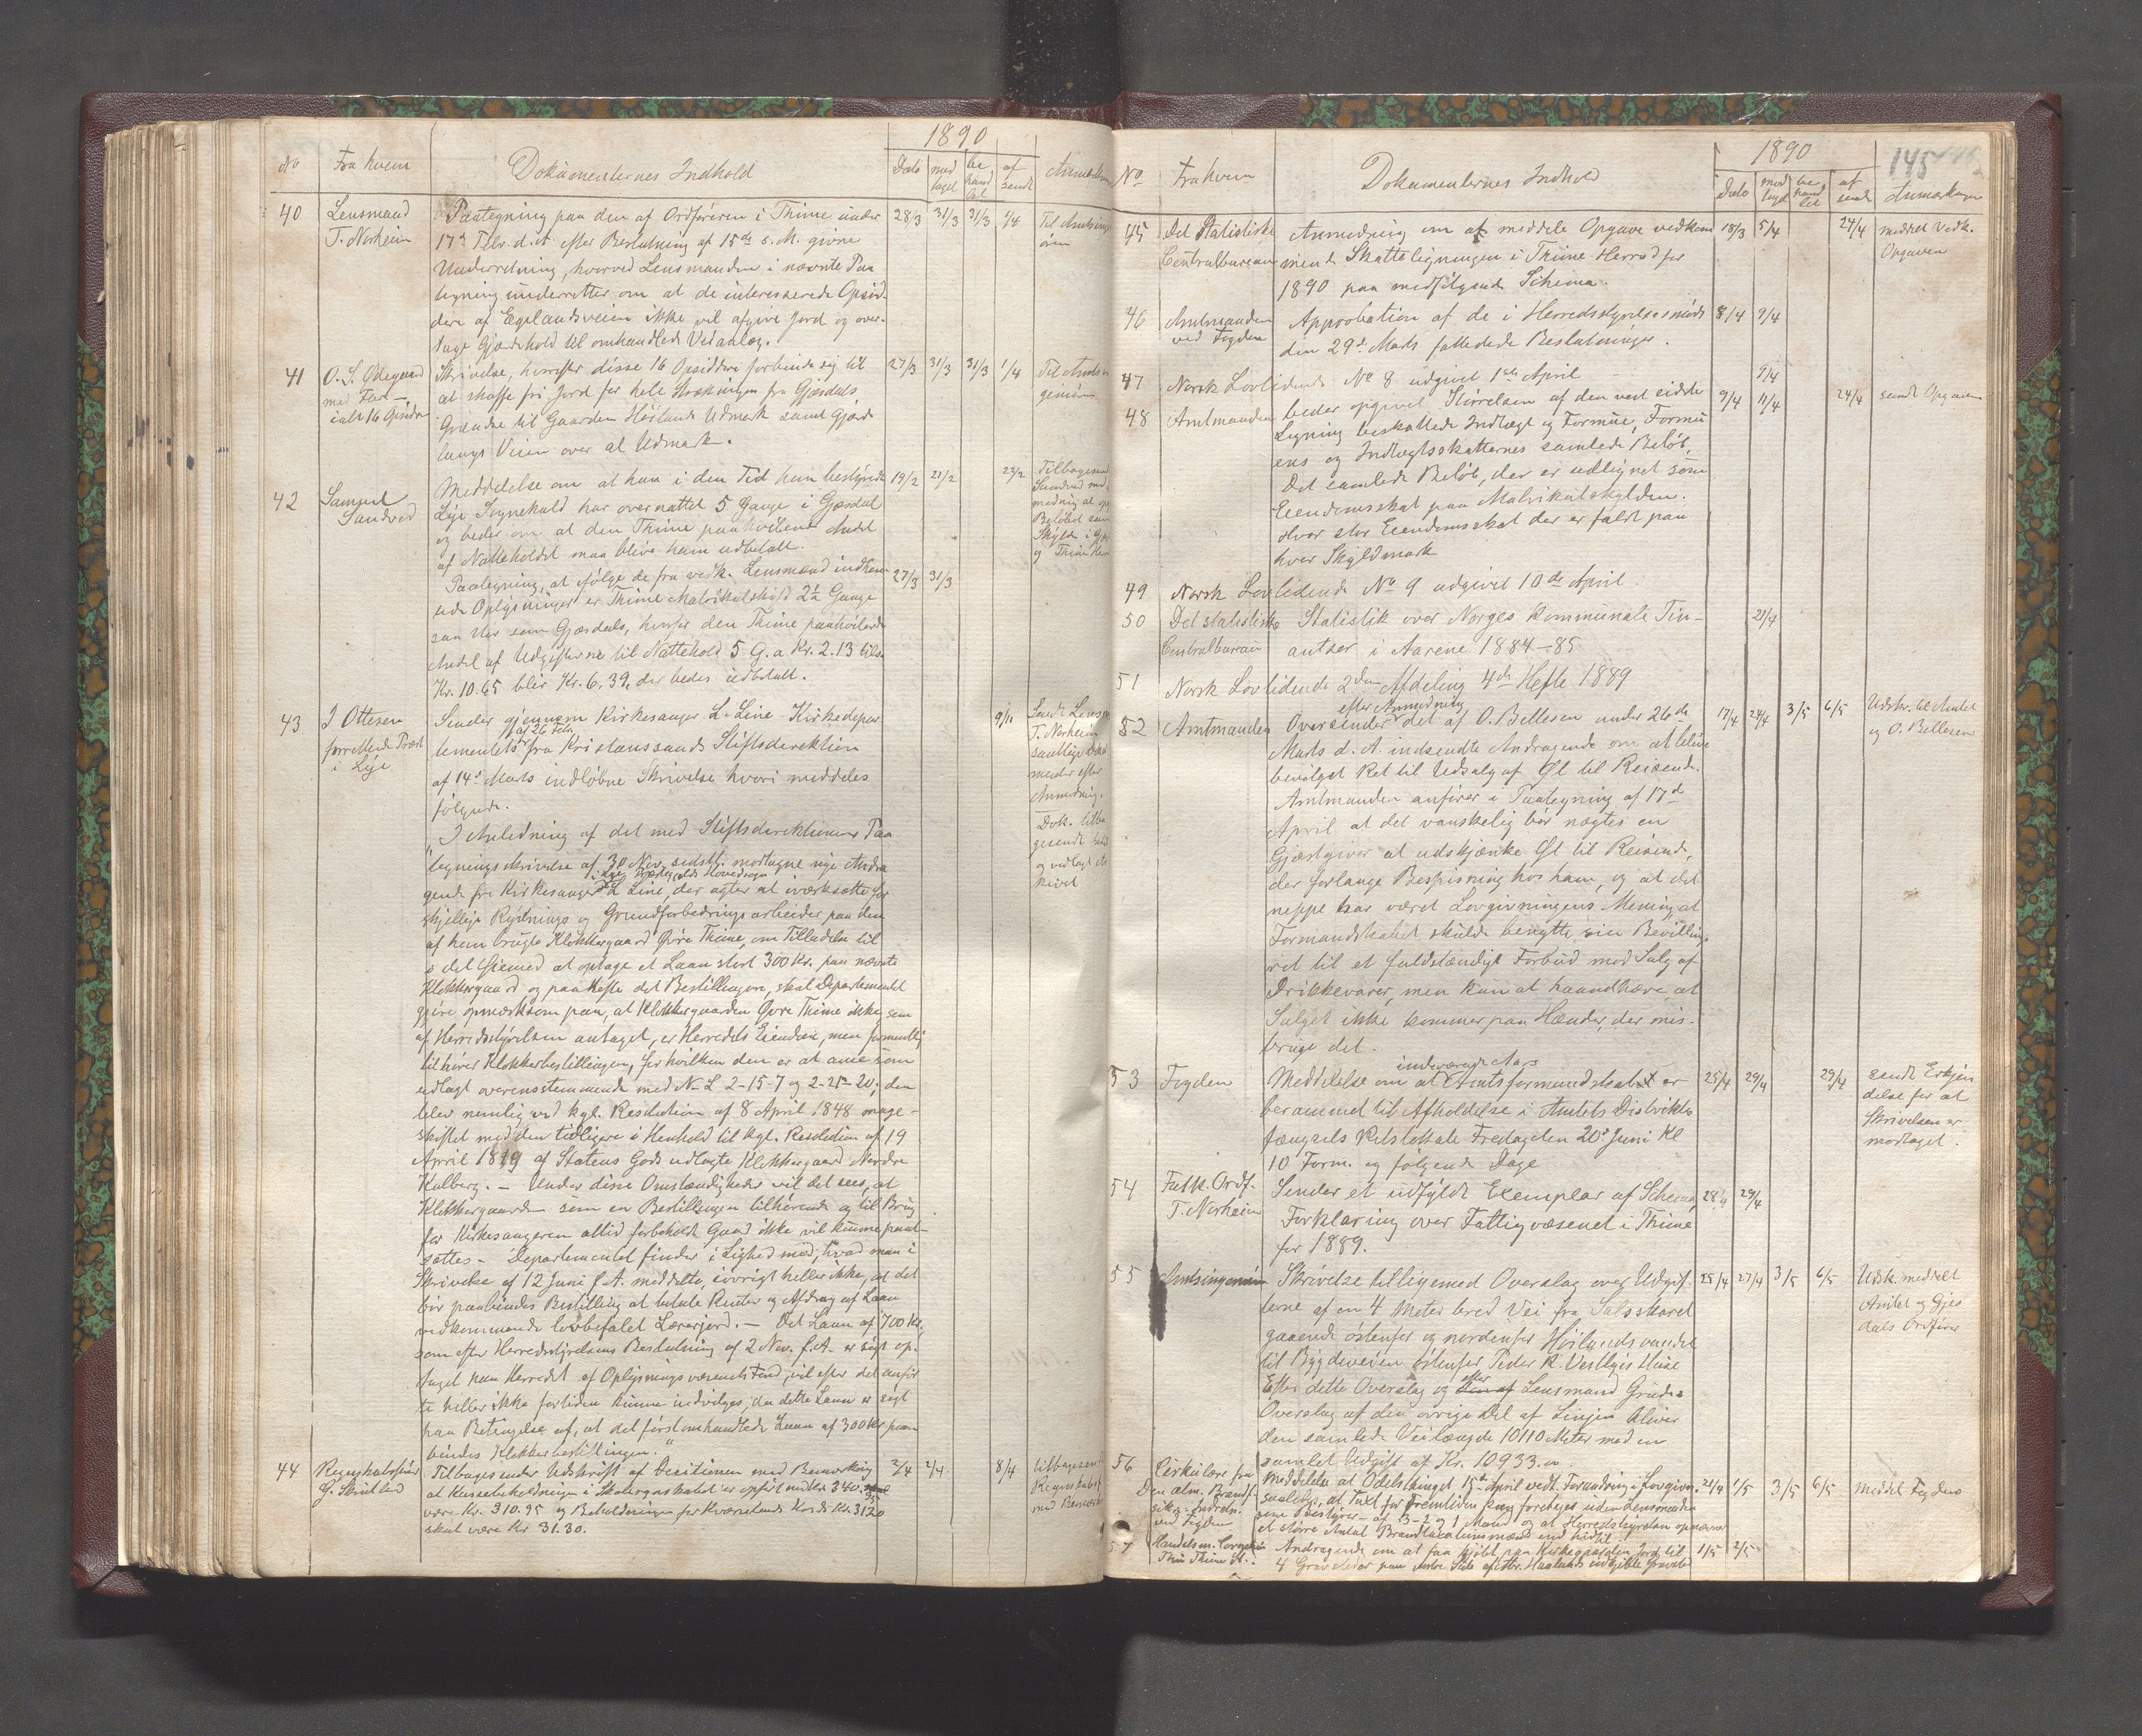 1890
No Fra hvem Dokumenternes Indhold Dato mod taget be hand let af sendt Anmærkn
40 Lensmand Paategning paa den af Ordføreren i Thime under 28/3 31/3 31/3 1/4 Til Amtsingi
T. Norheim 17de Febr. d. A. efter Beslutning af 15de s. M. givne øren
Underretning, hvorved Lensmanden i nævnte Paa
tegning underretter om at de interesserede Opsid-
dere af Egelandsveien ikke vil afgive Jord og over-
tage Gjærdehold til omhandlede Veianlæg.
41 O. S. Ødegaard Skrivelse, hvorefter disse 16 Opsiddere forbinde sig til 27/3 31/3 31/3 1/4 Til Amtsin
med Flere – at skaffe fri Jord for hele Strækningen fra Gjesdals geniøren
ialt 16 Opsiddere Grændse til Gaarden Høilands Udmark samt Gjærde
langs Veien over al Udmark.
42 Samuel Meddelelse om at han i den Tid han bestyrede 19/2 21/2 23/2 Tilbagesendt
Sandved Lye Sognekald har overnattet 5 Gange i Gjæsdal
og beder om at den Thime paahvilende Andel
af Natteholdet maa blive ham udbetalt.
Paategning, at ifølge de fra vedk. Lensmænd indhen 27/3 31/3
tede Oplysninger er Thime Matrikulskyld 2½ Gange
saa stor som Gjæsdals, hvorfor den Thime paahvilende
Andel af Udgifterne til Nattehold 5 G. a Kr. 2.13 tils.
Kr. 10.65 blir Kr. 6.39, der bedes udbetalt.
43 J Ottesen Sender gjennem Kirkesanger L. Line Kirkedepar 9/11 Sendt Lensm
forrettende Præst tementets af 26 Febr fra Kristianssands Stiftsdirektion T. Norheim
i Lye af 14de Marts indløbne Skrivelse hvori meddeles
følgende.
"I Anledning af det med Stiftsdirektionens Paa
tegningsskrivelse af 30 Nov. sidstl. modtagne nye Andra
gende fra Kirkesanger i Lye Præstegjelds Hovedsogn L Line, der agter at iværksætte for
skjellige Rydnings og Grundforbedrings arbeider paa den
af ham brugte Klokkergaard Øvre Thime, om Tilladelse til
i det Øiemed at optage et Laan stort 300 Kr. paa nævnte
Klokkergaard og paahefte det Bestillingen, skal Departementet
gjøre opmærksom paa, at Klokkergaarden Øvre Thime ikke, som
af Herredsstyrelsen antaget, er Herredets Eiendom, men formentlig
tilhører Klokkerbestillingen, for hvilken den er at anse som
udlagt overensstemmende med N. L 2-15-7 og 2-21-20; den
blev nemlig ved kgl. Resolution af 8 April 1848 mage-
skiftet med den tidligere i Henhold til kgl. Resolution af 19
April 1819 af Statens Gods udlagte Klokkergaard Nordre
Kulberg. – Under disse Omstændigheder vil det sees, at
Klokkergaarden som en Bestillingen tilhørende og til Brug
for Kirkesangeren altid forbeholdt Gaard ikke vil kunne pant-
sættes. – Departementet finder i Lighed med, hvad man i
Skrivelse af 12 Juni f. A. meddelte, iøvrigt heller ikke, at det
bør paabindes Bestilling at betale Renter og Afdrag af Laan
vedkommende lovbefalet Lærerjord. – Det Laan af 700 Kr.,
som efter Herredsstyrelsens Beslutning af 2 Nov. f. A. er søgt op-
taget paa Herredet af Oplysningsvæsenets Fond, vil efter det anfør
te heller ikke for tiden kunne indvilges, da dette Laan er søgt
paa Betingelse af, at det først omhandlede Laan af 300 Kr paa
bindes Klokkerbestillingen."
44 Regnskabsfører Tilbagesender Udskrift af Decisionen med Bemærkning 2/4 2/4 8/4 tilbagesen
G. Skrudland at Kassebeholdningen i Skoleregnskabet er opført med Kr. 340.
være Kr. 310.95 og Beholdningen for Kværnelands Kreds Kr. 31.20
skal være Kr 31.30.
1890 145
No Fra hvem Dokumenternes Indhold Dato mod taget be hand let af sendt Anmærkn
45 Det Statistiske Anmodning om at meddele Opgave vedkom 18/3 5/4 24/4 meddelt Vedk.
Centralbureau mende Skatteligningen i Thime Herred for Opgaven
1890 paa medfølgende Schema.
46 Amtmanden Approbation af de i Herredsstyrelsesmøde 8/4 9/4
ved Fogden den 29de Marts fattede Beslutninger.
47 Norsk Lovtidende No 8 udgivet 1ste April 9/4
48 Amtmanden beder opgivet Størrelsen af den ved sidste 9/4 11/4 24/4 sendt Opgaven
Ligning beskattede Indtægt og Formue, Formu
ens og Indtægtsskatternes samlede Beløb,
Det samlede Beløb, der er udlignet som
Eiendomsskat paa Matrikulskylden.
Hvor stor Eiendomsskat der er faldt paa
hver Skyldmark
49 Norsk Lovtidende No 9 udgivet 10de April
50 Det statistiske Statistik over Norges kommunale Fin- 21/4
Centralbureau antser i Aarene 1884–85
51 Norsk Lovtidende 2den Afdeling 4de Hefte 1889
52 Amtmanden Oversender efter Anmodning det af O. Bellesen under 26de 17/4 24/4 3/5 6/5 Udskr. til Amtet
Marts d. A. indsendte Andragende om at blive og O. Bellesen
bevilget Ret til Udsalg af Øl til Reisende.
Amtmanden anfører i Paategning af 17de
April at det vanskelig bør nægtes en
Gjæstgiver at udskjænke Øl til Reisende,
der forlange Bespisning hos ham, og at det
neppe har været Lovgivningens Mening, at
Formandskabet skulde benytte sin Bevillings
ret til et fuldstændigt Forbud mod Salg af
Drikkevarer, men kun at haandhæve, at
Salget ikke kommer paa Hænder, der mis-
bruge det.
53 Fogden Meddelelse om at indeværende Aars Amtsformandskabet er 25/4 29/4 29/4 sendt Erkjen
berammet til Afholdelse i Amtets Distrikts delse for at
fængsels Retslokale Fredagden 20de Juni Kl Skrivelsen er
10 Form. og følgende Dage modtaget.
54 Fatk. Ordf. Sender et udfyldt Exemplar af Schema, 28/4 29/4
T. Norheim Forklaring over Fattigvæsenet i Thime
for 1889.
55 Amtsingeniøren Skrivelse tilligemed Overslag over Udgif- 25/4 27/4 3/5 6/5 Udsk. meddelt
terne af en 4 Meter bred Vei fra Salsskaret Amtet og Gjes
gaaende østenfor og nordenfor Høilandsvandet dals Ordfører
til Bygdeveien østenfor Peder R. Vestlyis Huse
Efter dette Overslag og efter Lensmand Grudes
Overslag af den øvrige Del af Linjen bliver
den samlede Veilængde 10110 Meter med en
samlet Udgift af Kr. 10933.00
56 Cirkulære fra Meddelelse at Odelsthinget 15de April vedt. Forandring i Lovgivn. 21/4 1/5 3/5 6/5 Meddelt Fogden
Den alm. Brandf. saaledes, at Taxt for Fremtiden kan foretages uden Lensmanden
sikr.-Indretn. som Bestyrer – af 3–2 og 1 Mand og at Herredsstyrelsen opnævner
ved Fogden et større Antal Brandtaxationsmænd end hidtil
57 Handelsm. Andragende om at faa kjøbt paa Kirkegaarden Jord til 1/5 2/5
Thime St. 4 Gravsteder paa østre Side af Haalands indkjøbte Gravsted